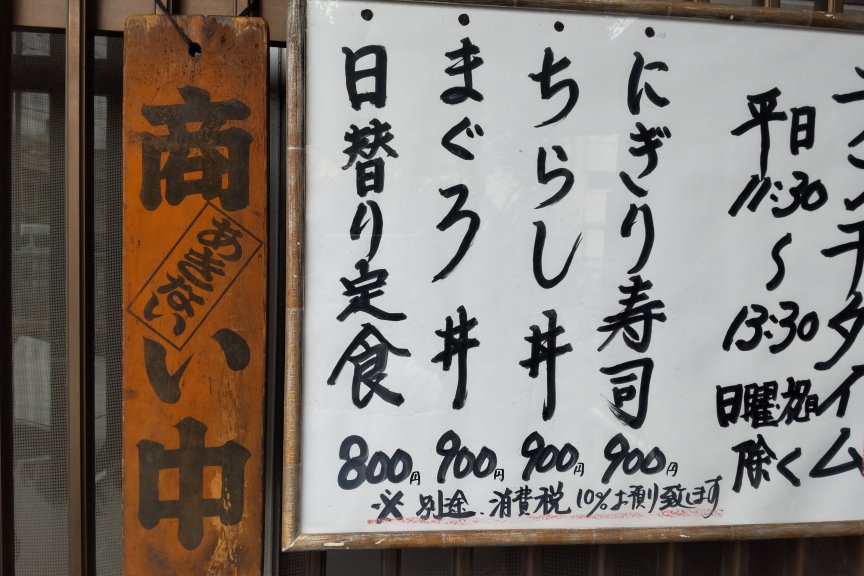 ランチタイム
平日
11:30
~
13:30
日曜・祝日
除く
・にぎり寿司 900円
・ちらし丼 900円
・まぐろ丼 900円
・日替り定食 800円
※別途、消費税10%お預り致します
商い中
あきない